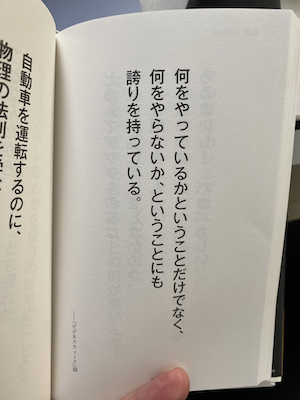 何をやっているかということだけでなく、
何をやらないか、ということにも
誇りを持っている。
——「ビジネスウィーク」誌
自動車を運転するのに、
物理の法則を